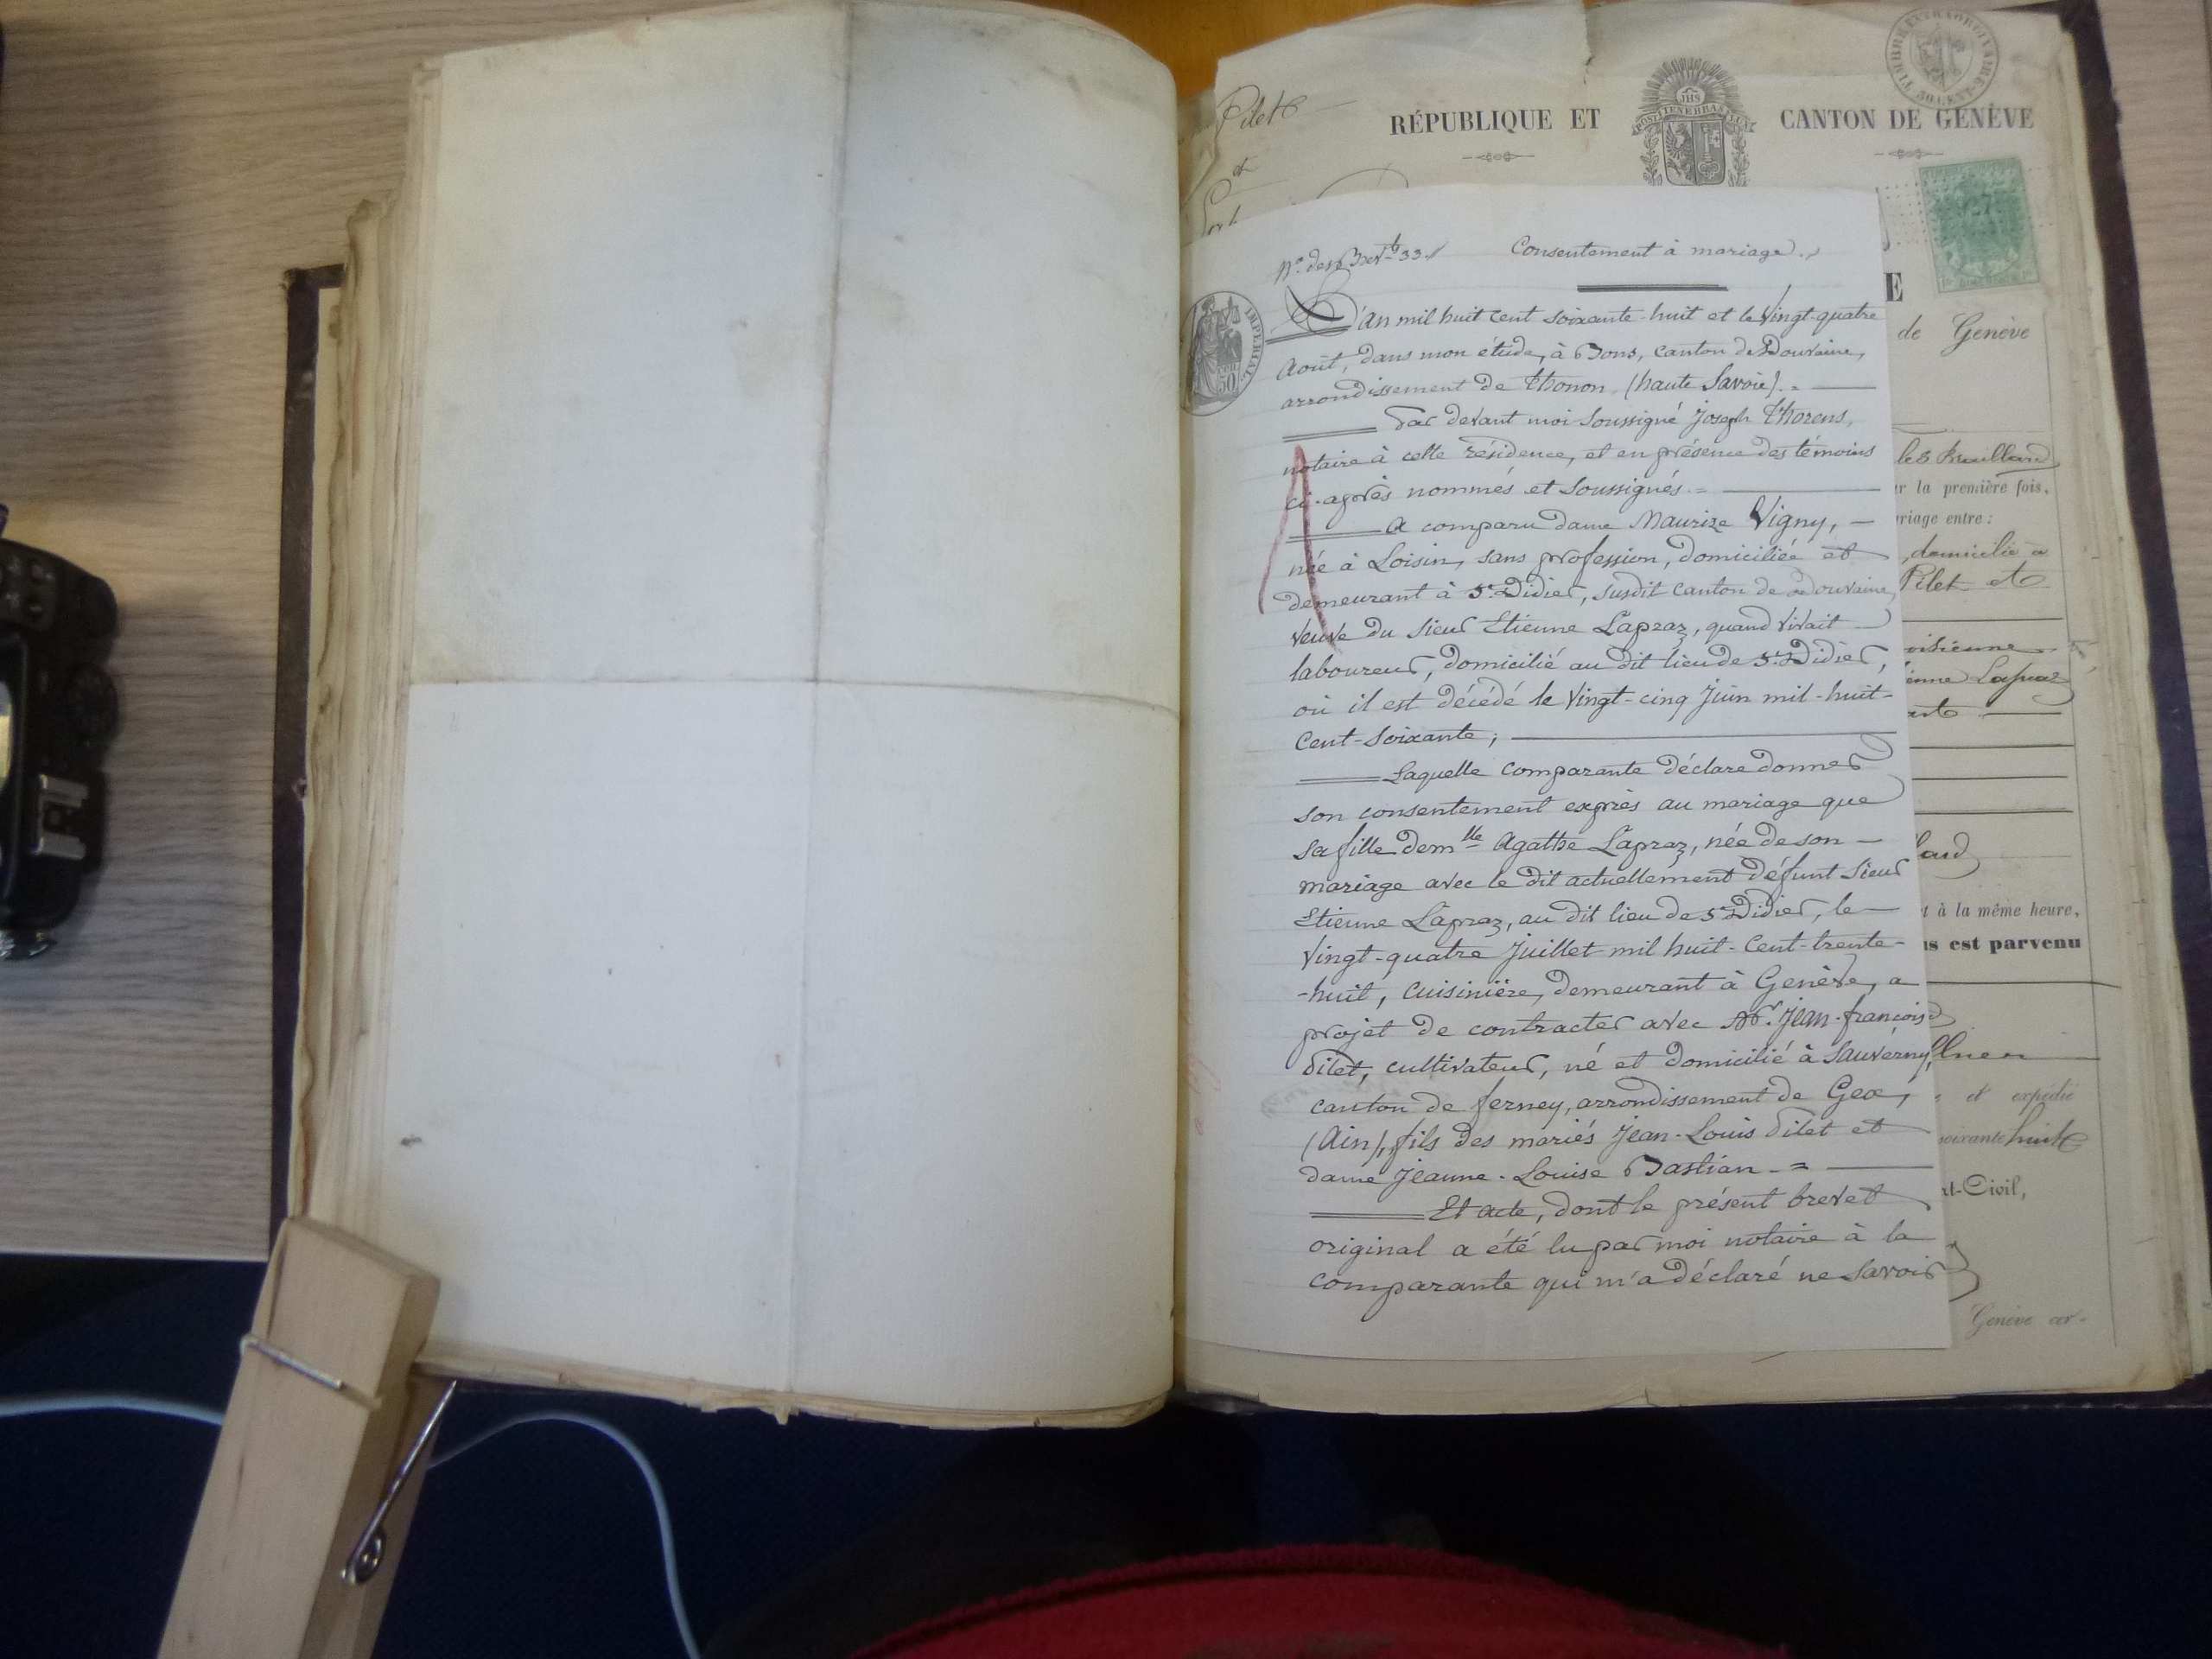 Pilet
et
RÉPUBLIQUE ET CANTON DE GENÈVE
POST TENEBRAS LUX
JHS
TIMBRE EXTRAORDINAIRE
50 CENT
IMPÉRIAL
50
E
de Genève
les
ur la première fois,
riage entre :
, domicilié à
Pilet et
enne Lapraz
t à la même heure,
us est parvenu
et expédié
soixante huit
at-Civil,
Genève cer-
Consentement à mariage.
L'an mil huit cent soixante-huit et le Vingt-quatre
Août, dans mon étude, à Bons, canton de Douvaine,
arrondissement de Thonon, (haute Savoie). =
Par devant moi soussigné Joseph Thorens,
notaire à cette résidence, et en présence des témoins
ci-après nommés et soussignés. =
A comparu dame Maurize Vigny, —
née à Loisin, sans profession, domiciliée et
demeurant à St. Didier, susdit canton de Douvaine,
veuve du sieur Etienne Lapraz, quand vivait
laboureur, domicilié au dit lieu de St. Didier,
où il est décédé le Vingt-cinq Juin mil-huit-
Cent-Soixante ;
Laquelle comparante déclare donner
son consentement exprès au mariage que
sa fille demlle Agathe Lapraz, née de son —
mariage avec le dit actuellement défunt sieur
Etienne Lapraz, au dit lieu de St. Didier, le —
Vingt-quatre Juillet mil huit-Cent-trente-
-huit, cuisinière, demeurant à Genève, a
projet de contracter avec Mr. Jean-françois
Pilet, cultivateur, né et domicilié à Sauverny,
canton de ferney, arrondissement de Gex,
(Ain), fils des mariés Jean-Louis Pilet et
dame Jeanne-Louise Bastian. =
Et acte, dont le présent brevet
original a été lu par moi notaire à la
comparante qui m'a déclaré ne savoir